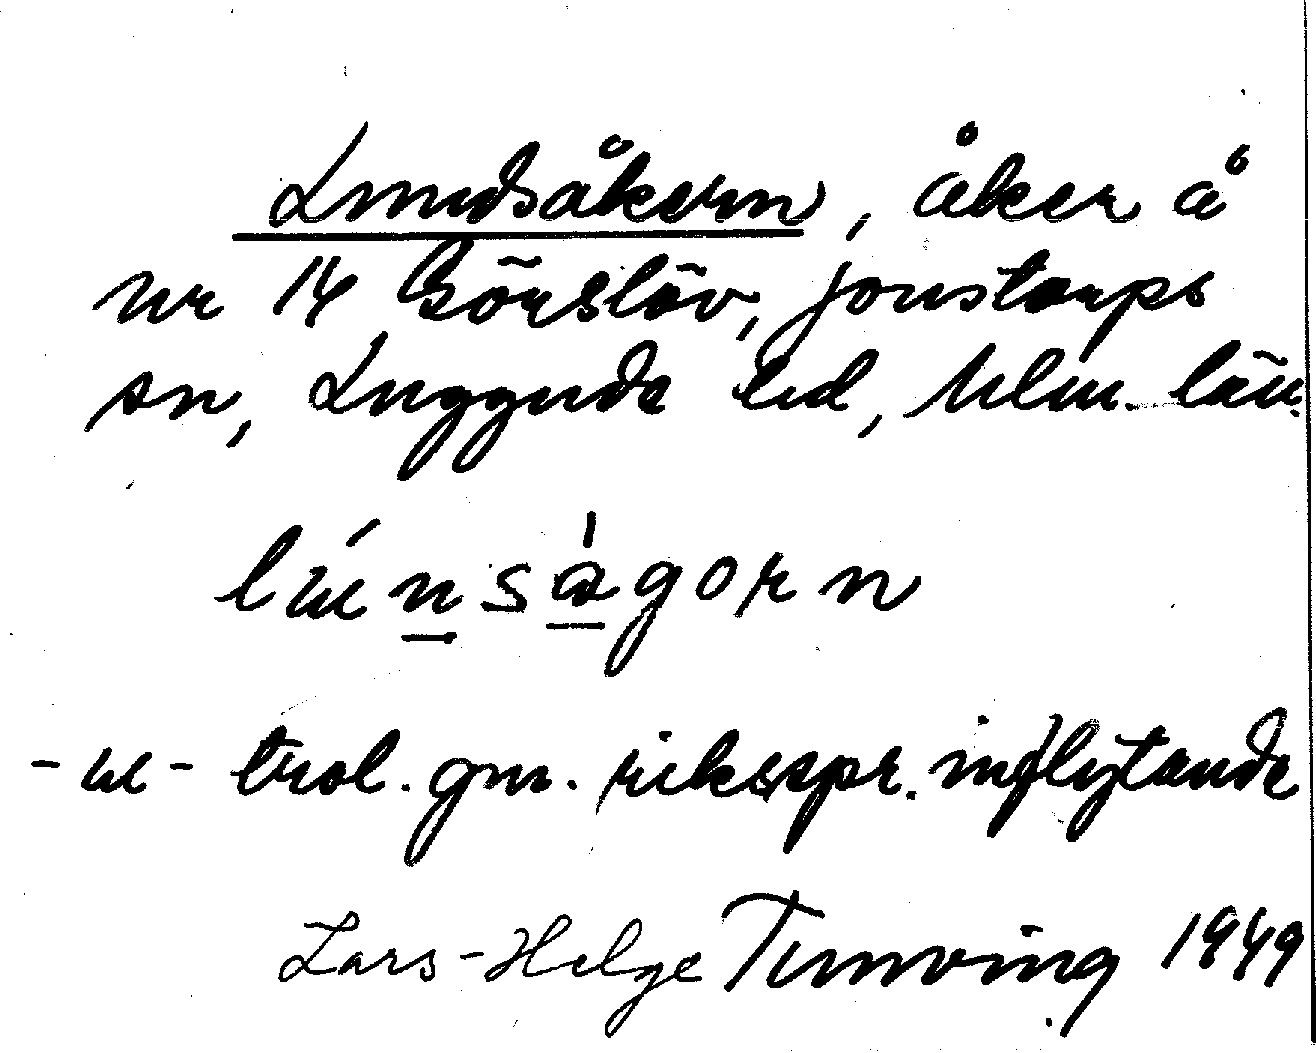 Lundsåkern, åker å
nr 14 Görslöv, Jonstorps
sn, Luggude hd, Mlm. län.
lúnsågorn
-u- trol. gm. riksspr. inflytande
Lars-Helge Tunving 1949